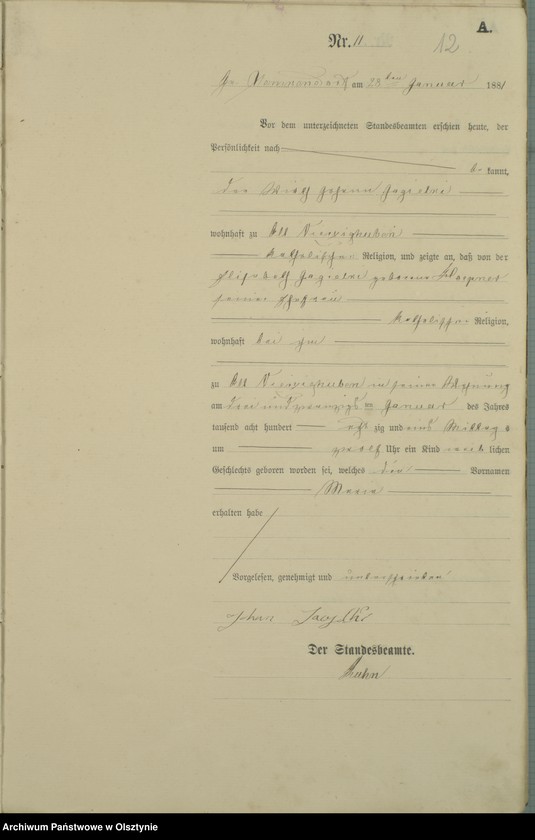 A.
Nr. 11
12
am 23ten Januar 1881
Vor dem unterzeichneten Standesbeamten erschien heute, der
Persönlichkeit nach
be kannt,
der Wirth Johann
wohnhaft zu Alt Vierzighuben
katholischer Religion, und zeigte an, daß von der
Elisabeth geborene
seiner Ehefrau
katholischer Religion,
wohnhaft bei ihm
zu Alt Vierzighuben in seiner Wohnung
am drei und zwanzigsten Januar des Jahres
tausend acht hundert acht zig und eins Mittags
um zwölf Uhr ein Kind weib lichen
Geschlechts geboren worden sei, welches den Vornamen
Maria
erhalten habe
Vorgelesen, genehmigt und unterschrieben
Johann
Der Standesbeamte.